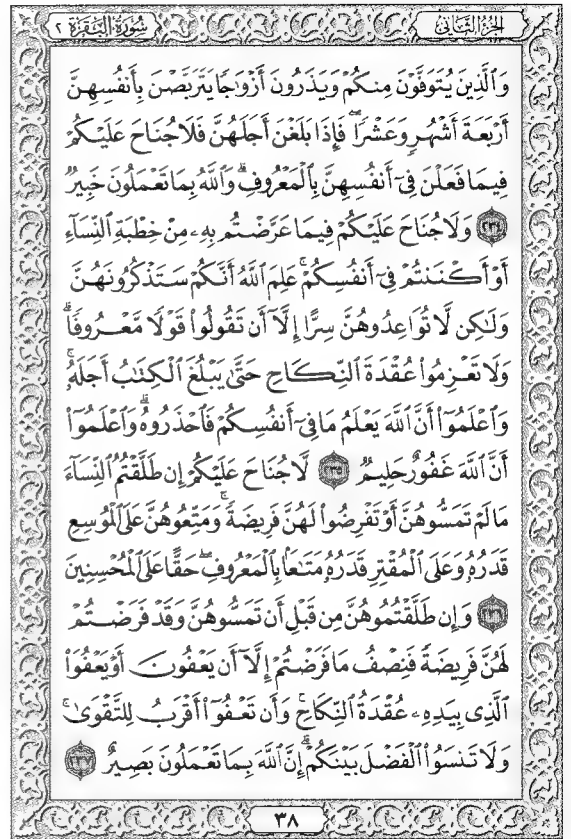 سُورَةُ البَقَرَةِ ٢
الجُزْءُ الثَّانِي
وَٱلَّذِينَ يُتَوَفَّوْنَ مِنكُمْ وَيَذَرُونَ أَزْوَٰجًا يَتَرَبَّصْنَ بِأَنفُسِهِنَّ
أَرْبَعَةَ أَشْهُرٍ وَعَشْرًا ۖ فَإِذَا بَلَغْنَ أَجَلَهُنَّ فَلَا جُنَاحَ عَلَيْكُمْ
فِيمَا فَعَلْنَ فِىٓ أَنفُسِهِنَّ بِٱلْمَعْرُوفِ ۗ وَٱللَّهُ بِمَا تَعْمَلُونَ خَبِيرٌ
٢٣٤ وَلَا جُنَاحَ عَلَيْكُمْ فِيمَا عَرَّضْتُم بِهِۦ مِنْ خِطْبَةِ ٱلنِّسَآءِ
أَوْ أَكْنَنتُمْ فِىٓ أَنفُسِكُمْ ۚ عَلِمَ ٱللَّهُ أَنَّكُمْ سَتَذْكُرُونَهُنَّ
وَلَٰكِن لَّا تُوَاعِدُوهُنَّ سِرًّا إِلَّآ أَن تَقُولُوا۟ قَوْلًا مَّعْرُوفًا ۚ
وَلَا تَعْزِمُوا۟ عُقْدَةَ ٱلنِّكَاحِ حَتَّىٰ يَبْلُغَ ٱلْكِتَٰبُ أَجَلَهُۥ ۚ
وَٱعْلَمُوٓا۟ أَنَّ ٱللَّهَ يَعْلَمُ مَا فِىٓ أَنفُسِكُمْ فَٱحْذَرُوهُ ۚ وَٱعْلَمُوٓا۟
أَنَّ ٱللَّهَ غَفُورٌ حَلِيمٌ ٢٣٥ لَّا جُنَاحَ عَلَيْكُمْ إِن طَلَّقْتُمُ ٱلنِّسَآءَ
مَا لَمْ تَمَسُّوهُنَّ أَوْ تَفْرِضُوا۟ لَهُنَّ فَرِيضَةً ۚ وَمَتِّعُوهُنَّ عَلَى ٱلْمُوسِعِ
قَدَرُهُۥ وَعَلَى ٱلْمُقْتِرِ قَدَرُهُۥ مَتَٰعًۢا بِٱلْمَعْرُوفِ ۖ حَقًّا عَلَى ٱلْمُحْسِنِينَ
٢٣٦ وَإِن طَلَّقْتُمُوهُنَّ مِن قَبْلِ أَن تَمَسُّوهُنَّ وَقَدْ فَرَضْتُمْ
لَهُنَّ فَرِيضَةً فَنِصْفُ مَا فَرَضْتُمْ إِلَّآ أَن يَعْفُونَ أَوْ يَعْفُوَا۟
ٱلَّذِى بِيَدِهِۦ عُقْدَةُ ٱلنِّكَاحِ ۚ وَأَن تَعْفُوٓا۟ أَقْرَبُ لِلتَّقْوَىٰ ۚ
وَلَا تَنسَوُا۟ ٱلْفَضْلَ بَيْنَكُمْ ۚ إِنَّ ٱللَّهَ بِمَا تَعْمَلُونَ بَصِيرٌ ٢٣٧
٣٨